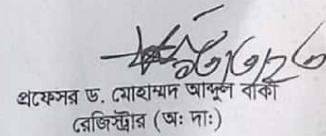 প্রফেসর ড. মোহাম্মদ আব্দুল বাকী
রেজিস্ট্রার (অ: দা:)